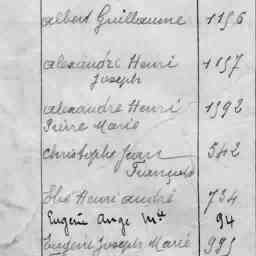 Albert Guillaume 1196
Alexandre Henri 1197
Joseph
Alexandre Henri 1392
Pierre Marie
Christophe Jean 542
François
Henri André 734
Eugène Ange Mie 94
Eugène Joseph Marie 995